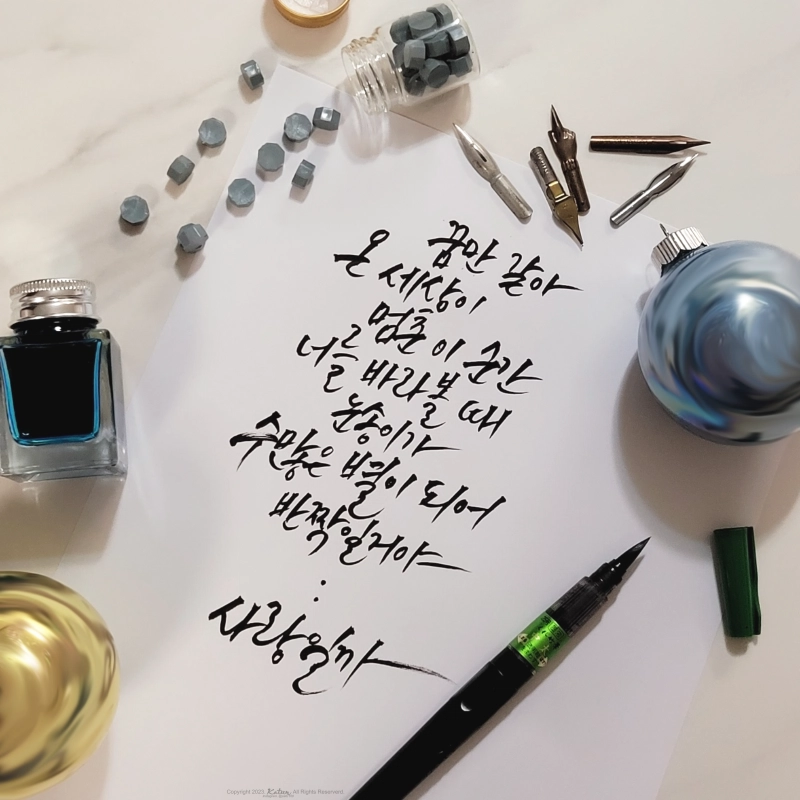 꿈만 같아
온 세상이
멈춘 이 순간
너를 바라볼 때
눈송이가
수많은 별이 되어
반짝일거야
:
사랑일까
Copyright 2023 All Rights Reserved.